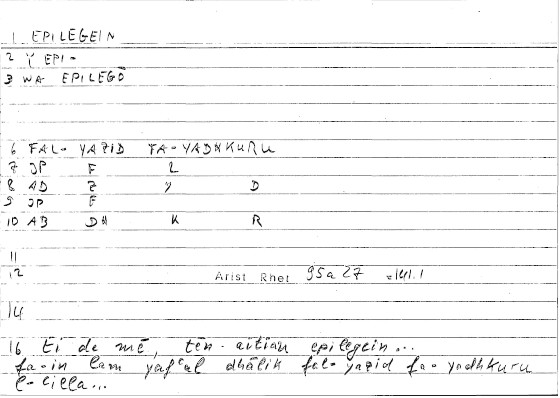 1 EPILEGEIN
2 Y EPI-
3 WA EPILEGŌ
6 FAL-YAZID FA-YADHKURU
7 JP F L
8 AD Z Y D
9 JP F
10 AB DH K R
11
12 Arist Rhet 95a27 =141.1
14
16 ei de mē, tēn aitian epilegein...
fa-in lam yafʿal dhālik fal-yazid fa-yadhkuru
l-ʿilla...